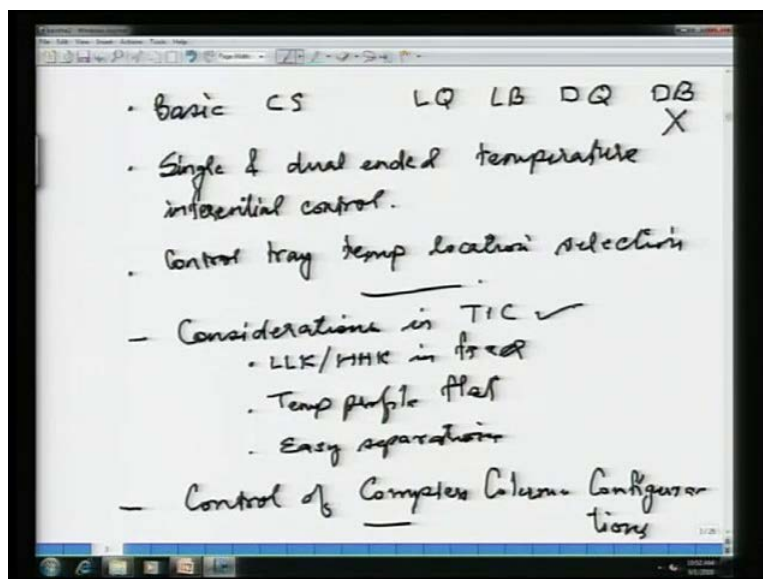 · Basic CS LQ LB DQ DB
X
· Single & dual ended temperature
inferential control.
· Control tray temp location selection
- Considerations in TIC ✓
· LLK/HHK in feed
· Temp profile flat
· Easy separations
- Control of Complex Column Configura
tions